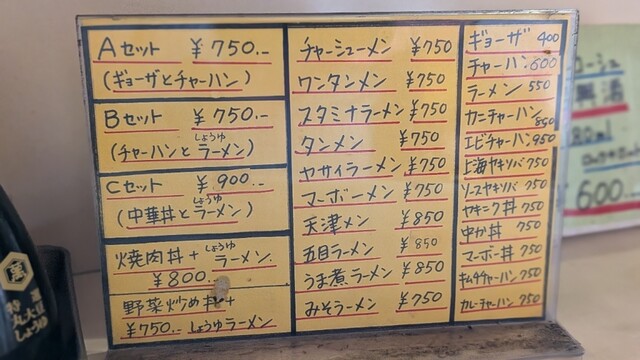 Aセット ¥750.-
(ギョーザとチャーハン)
Bセット ¥750.-
しょうゆ
(チャーハンとラーメン)
Cセット ¥900.-
しょうゆ
(中華丼とラーメン)
しょうゆ
焼肉丼+ラーメン
¥800.
野菜炒め丼+
¥750.- しょうゆラーメン
チャーシューメン ¥750
ワンタンメン ¥750
スタミナラーメン ¥750
タンメン ¥750
ヤサイラーメン ¥750
マーボーメン ¥750
天津メン ¥850
五目ラーメン ¥850
うま煮ラーメン ¥850
みそラーメン ¥750
ギョーザ 400
チャーハン 600
ラーメン 550
カニチャーハン 850
エビチャーハン 950
上海ヤキソバ 750
ソースヤキソバ 750
ヤキニク丼 750
中か丼 750
マーボー丼 750
キムチチャーハン 750
カレーチャーハン 750
600
しょうゆ